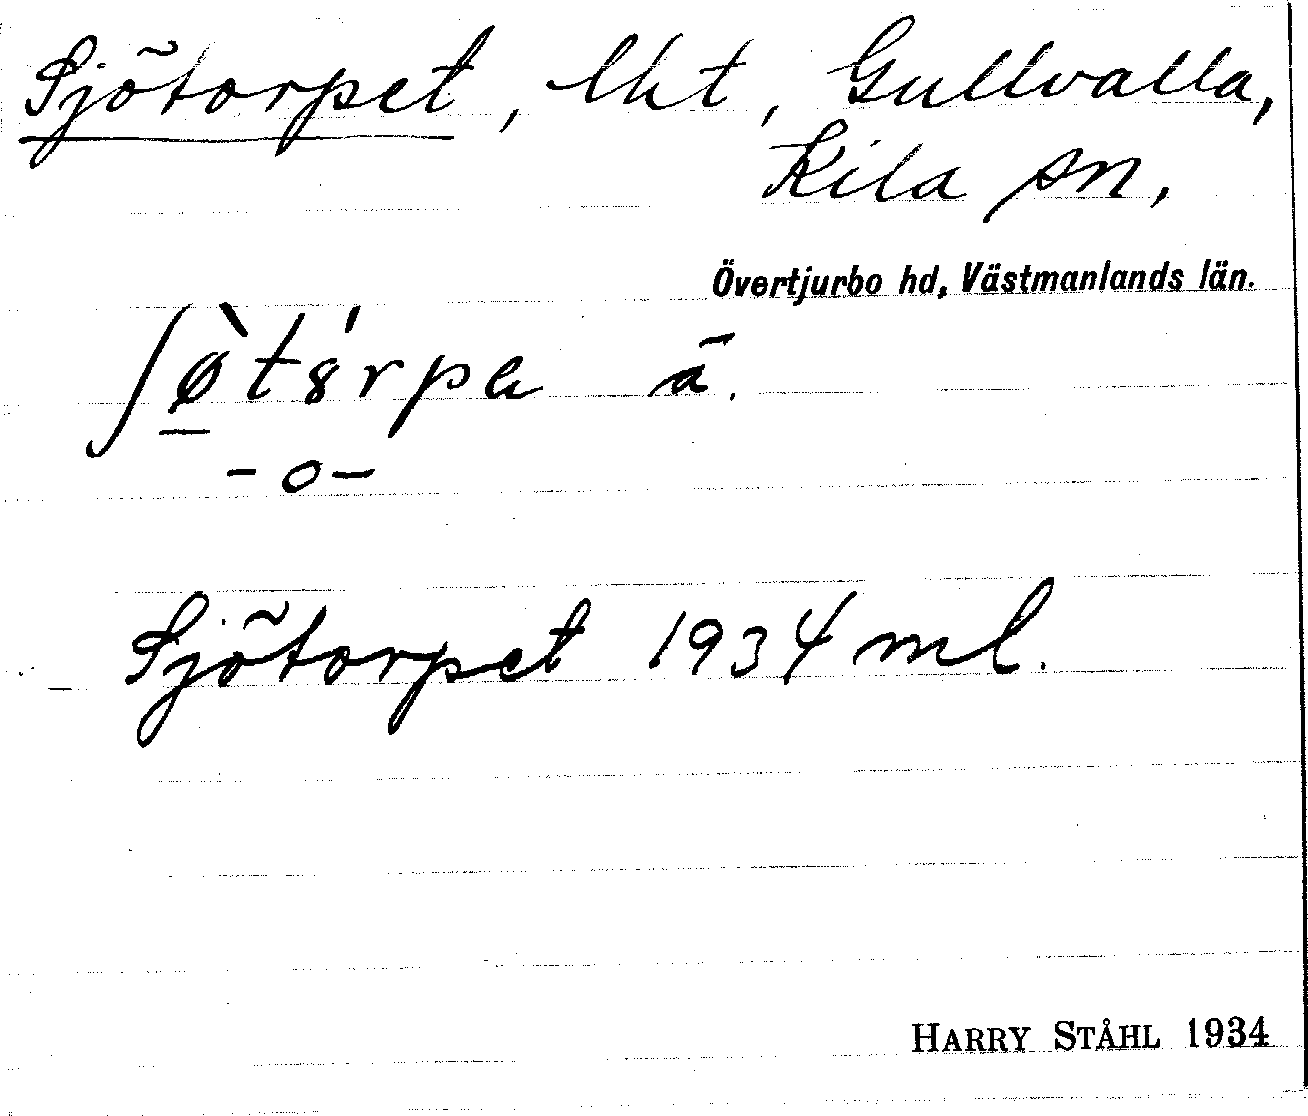 Sjötorpet, lht, Gullvalla,
Kila sn,
Övertjurbo hd, Västmanlands län.
ʃø̀tərpa ā.
-o-
Sjötorpet 1934 ml.
HARRY STÅHL 1934